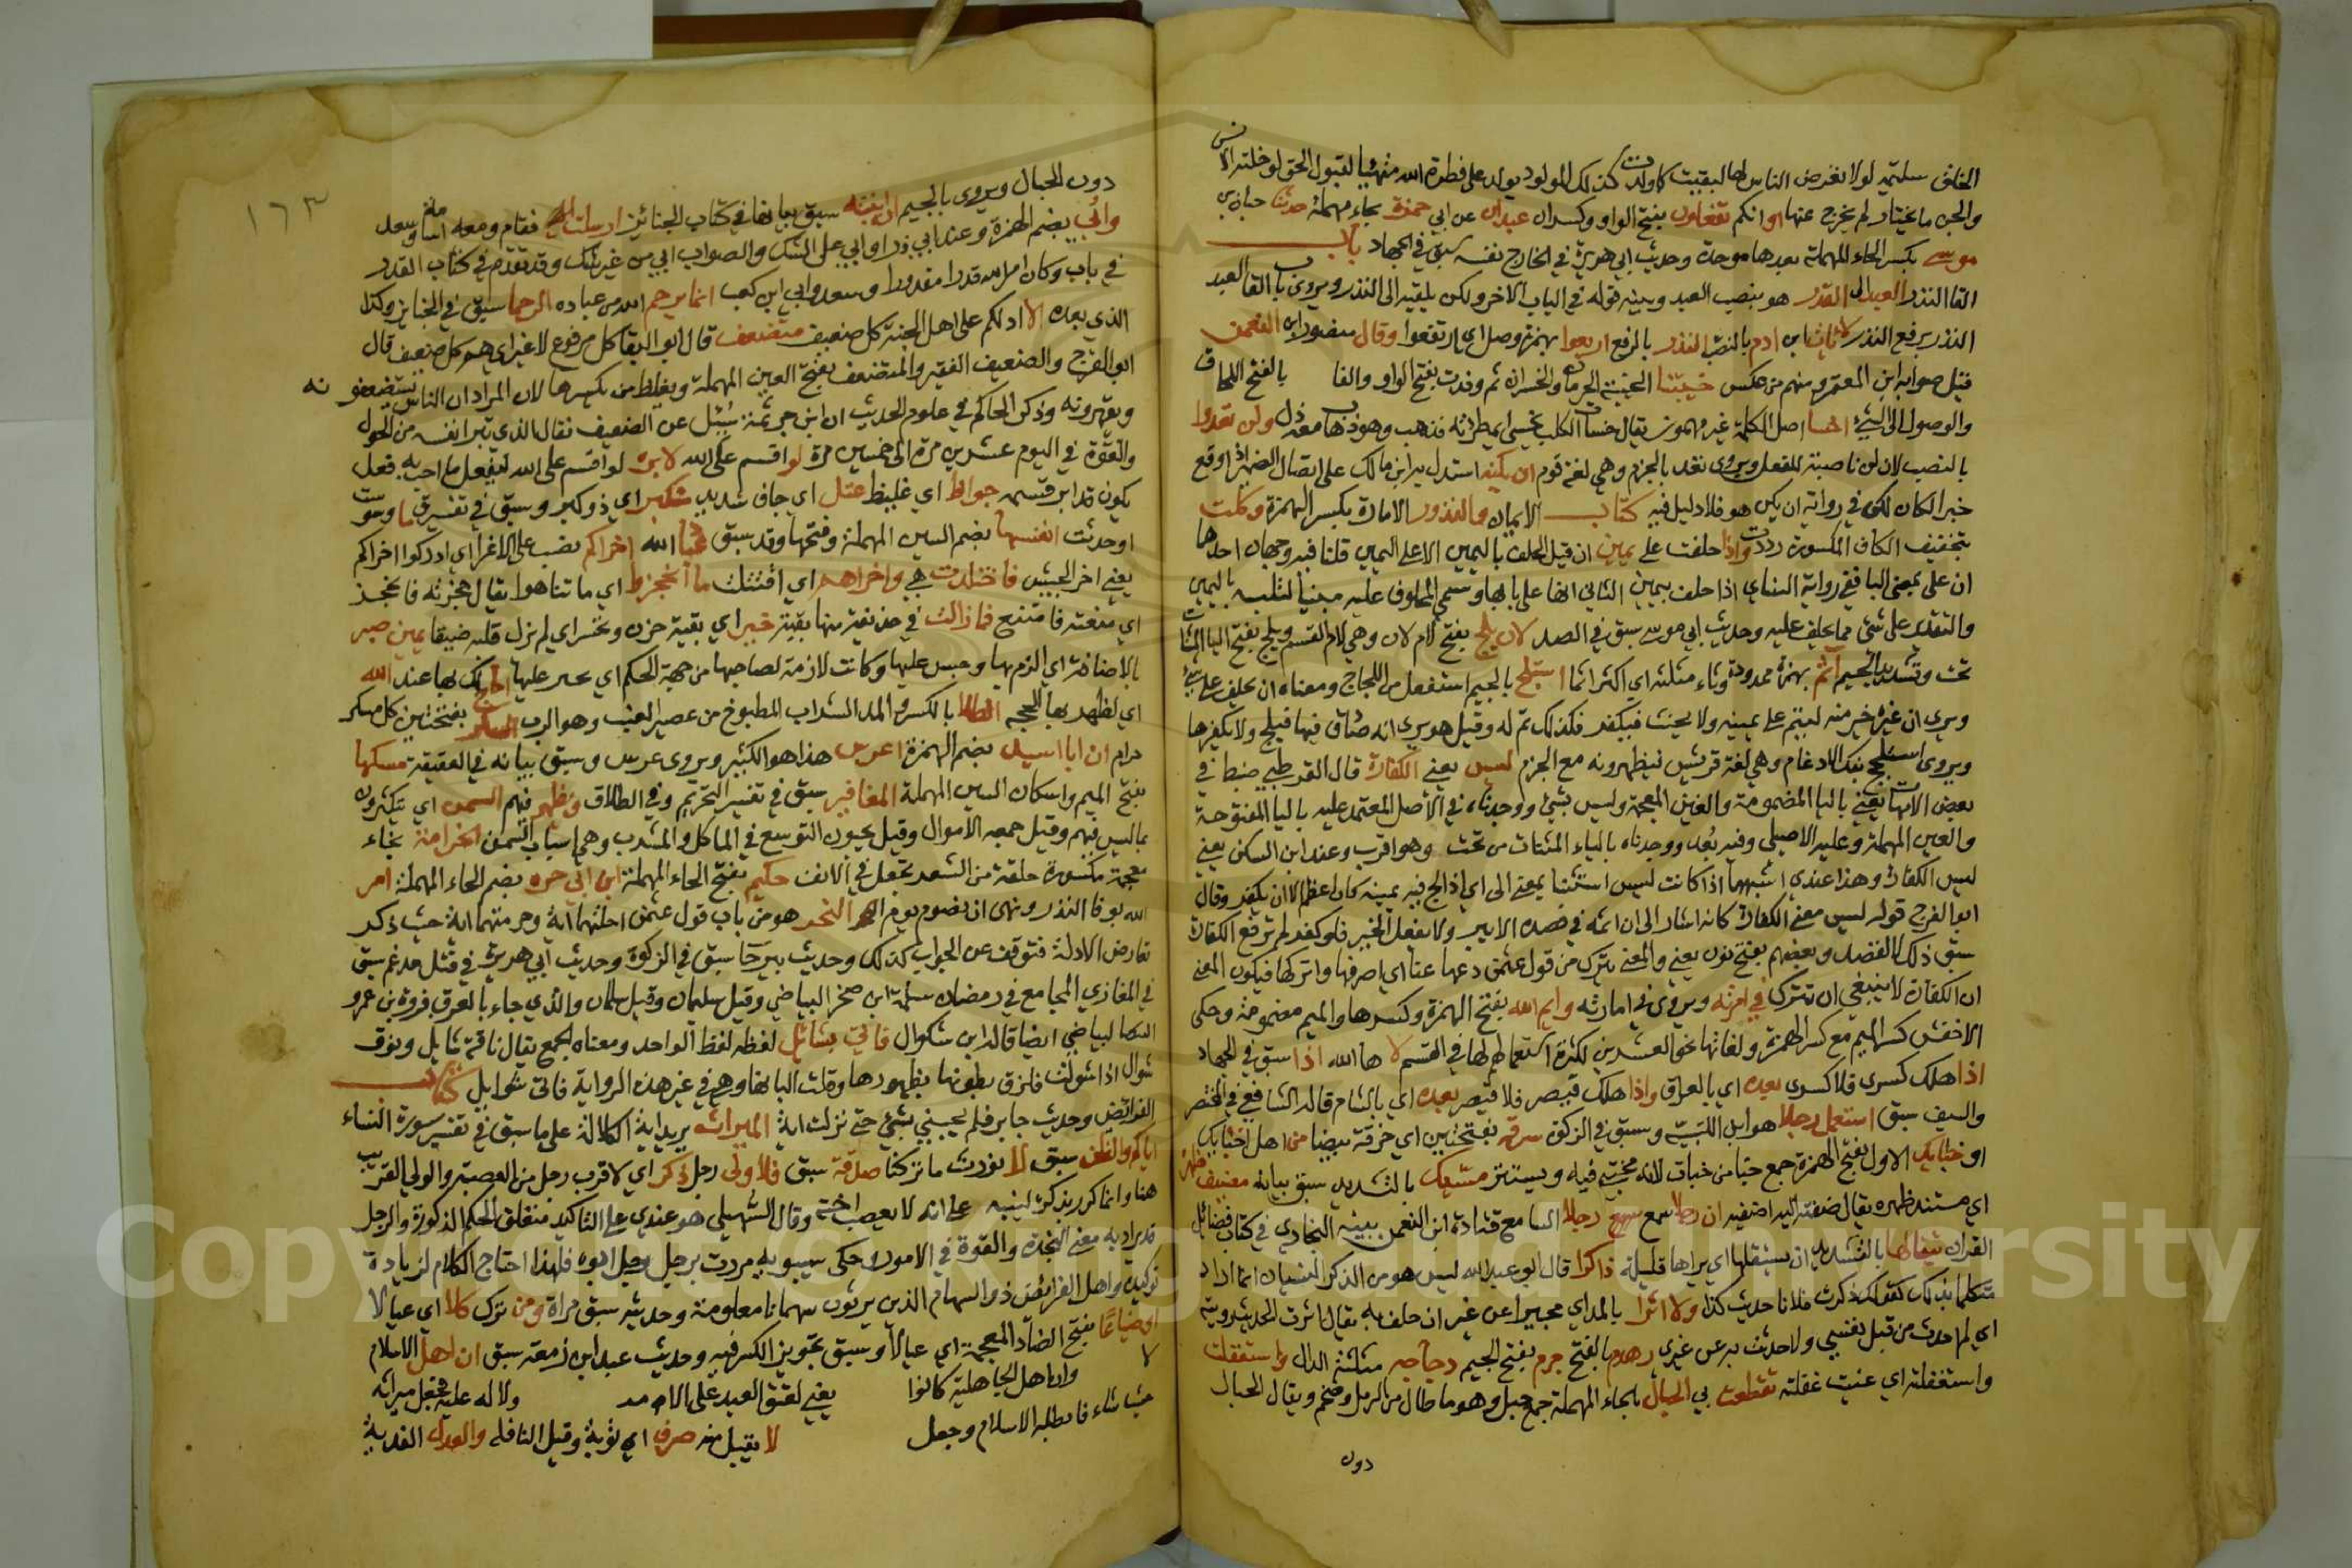 الخلق سليمة لولا تعرض الناس لها لبقيت كما ولدت كذلك المولود يولد على فطرة الله متهيئا لقبول الحق لو خلته الانس
والجن ما يختار لم يخرج عنها او انكم تفعلون بفتح الواو وكسر ان عبدان عن ابي حمزة بحاء مهملة حدثنا حبان بن
موسى بكسر الحاء المهملة بعدها موحدة وحديث ابي هريرة في الخارج نفسه سبق في الجهاد باب
القا النذر العبد الى القدر هو بنصب العبد وبينه قوله في الباب الاخر ولكن يلقيه الى النذر ويروى باب القا العبد
النذر برفع النذر لا يات ابن ادم بالنصب النذر بالرفع اربعوا بهمزة وصل اي ارتفعوا وقال منصور ابن النعمن
قيل صوابه ابن المعتمر ومنهم من عكس خيبتنا الخيبة الحرمان والخسران ثم وفدت بفتح الواو والفا بالفتح اللحاق
والوصول الى الشيء اخسا اصل الكلمة غير مهموز يقال خسات الكلب فخسي اي طردته فذهب وهو ذهاب معه ذل ولن تعدوا
بالنصب لان لن ناصبة للفعل ويروى تعد بالجزم وهي لغة قوم ان يكنه استدل به ابن مالك على اتصال الضمير اذا وقع
خبر الكان لكن في رواية ان يكن هو فلا دليل فيه كتاب الايمان والنذور الامارة بكسر الهمزة وكلت
بتخفيف الكاف المكسورة رددت واذا حلفت على يمين ان قيل الحلف باليمين لا على اليمين قلنا فيه وجهان احدهما
ان على بمعنى البا ففي رواية النساي اذا حلفت بيمين الثاني انها على بابها وسمي المحلوف عليه يمينا لتلبسه باليمين
والتقدير على شيء مما يحلف عليه وحديث ابي موسى سبق في الصيد لان يلج بفتح لام لان وهي لام القسم ويلج بفتح اليا المثناة
تحت وتشديد الجيم آثم بهمزة ممدودة وثاء مثلثة اي اكثر اثما استلج بالجيم استفعل من اللجاج ومعناه ان يحلف على شيء
ويرى ان غيره خير منه ليتم على يمينه ولا يحنث فيكفر فكذلك ثم له وقيل هو يرى انه صادق فيها فيلج ولا يكفرها
ويروى استلجج بفك الادغام وهي لغة قريش فيظهرونه مع الجزم ليس يعني الكفارة قال القرطبي ضبط في
بعض الامهات يغني باليا المضمومة والغين المعجمة وليس بشيء ووجدناه في الاصل المعتمد عليه باليا المفتوحة
والعين المهملة وعليه الاصيلي وفيه بعد ووجدناه بالياء المثناة من تحت وهو اقرب وعند ابن السكن يعني
ليس الكفارة وهذا عندي اشبهها اذا كانت ليس استثنا بمعنى الا اي اذا لج في يمينه كان اعظم الا ان يكفر وقال
ابو الفرج قوله ليس معنى الكفارة كانه اشار الى ان اثمه في قصده الا يبر ولا يفعل الخير فلو كفر لم ترفع الكفارة
سبق ذلك القصد وبعضهم بفتح نون يعني والمعنى يترك من قول عثمن دعها عنا اي اصرفها واتركها فيكون المعنى
ان الكفارة لا ينبغي ان تترك في امرته ويروى في امارته وايم الله بفتح الهمزة وكسرها والميم مضمومة وحكى
الاخفش كسر الميم مع كسر الهمزة ولغاتها نحو العشرين لكثرة استعمالهم لها في القسم لا ها الله اذا سبق في الجهاد
اذا هلك كسرى فلا كسرى بعده اي بالعراق واذا هلك قيصر فلا قيصر بعده اي بالشام قاله الشافعي في المختصر
والسيف سبق استعمل رجلا هو ابن اللتبية وسبق في الزكوة سرقة بفتحتين اي خرقة بيضا من اهل اخبائك
او خبائك الاول بفتح الهمزة جمع خبا من خبات لانه يختبى فيه ويستتر مسيك بالتشديد سبق بيانه مضيف ظهره
اي مستند ظهره يقال ضفته اليه اضفيه ان رجلا سمع رجلا السامع قتادة ابن النعمن بينه البخاري في كتاب فضائل
القران يتقالها بالتشديد اي يستقلها اي يراها قليلة ذاكرا قال ابو عبد الله ليس هو من الذكر النسيان انما اراد
متكلما بذلك كقولك ذكرت فلانا حديث كذا ولا اثرا بالمد اي مخبرا عن غير ان حلف به يقال اثرت الحديث رويته
اي لم احدث من قبل نفسي ولا حدثت به عن غيري زهدم بالفتح جرم بفتح الجيم دجاجه مثلثة الدال واستغفلت
واستغفلته اي عنيت غفلته تقطعت بي الحبال بالحاء المهملة جمع حبل وهو ما طال من الرمل وضخم ويقال الحبال
دون
١٦٣
دون الجبال ويروى بالجيم ان ابنته سبق بيانها في كتاب الجنائز ارسلت اليه فقام ومعه اسامة وسعد
وابي بضم الهمزة وعند ابي ذر او ابي على الشك والصواب ابي من غير شك وقد تقدم في كتاب القدر
في باب وكان امر الله قدرا مقدورا وسعد وابي ابن كعب انما يرحم الله من عباده الرحما سبق في الجنايز وكذا
الذي بعده الا ادلكم على اهل الجنة كل ضعيف متضعف قال ابو البقا كل مرفوع لا غير اي هم كل ضعيف قال
ابو الفرج والضعيف الفقير والمتضعف بفتح العين المهملة ويغلط من يكسرها لان المراد ان الناس يستضعفونه
ويقهرونه وذكر الحاكم في علوم الحديث ان ابن خزيمة سئل عن الضعيف فقال الذي يتبرا نفسه من الحول
والقوة في اليوم عشرين مرة الى خمسين مرة لو اقسم على الله لابره لو اقسم على الله ليفعل ما احب به فعل
يكون قد ابر قسمه جواظ اي غليظ عتل اي جاف شديد متكبر اي ذو كبر وسبق في تفسير ق ما وسوست
او حدثت انفسها بضم السين المهملة وفتحها وقد سبق عباد الله اخراكم نصب على الاغرا اي ادركوا اخراكم
يعني اخر الجيش فاجتلدت هي واخراهم اي اقتتلت ما انحجزوا اي ما تناهوا يقال حجزته فانحجز
اي منعته فامتنع فما زالت في حذيفة منها بقية خير اي بقية حزن وتحسر اي لم يزل قلبه ضيقا يمين صبر
بالاضافة اي الزم بها وحبس عليها وكانت لازمة لصاحبها من جهة الحكم اي يصبر عليها احاج لك بها عند الله
اي لظهر بها الحجة الطلا بالكسر والمد الشراب المطبوخ من عصير العنب وهو الرب السكر بفتحتين كل مسكر
حرام ان ابا اسيد بضم الهمزة اعرس هذا هو الكثير ويروى عرس وسبق بيانه في العقيقة مسكها
بفتح الميم واسكان السين المهملة المغافير سبق في تفسير التحريم وفي الطلاق ويظهر فيهم السمن اي يتكثرون
بما ليس فيهم وقيل جمعه الاموال وقيل يحبون التوسع في الماكل والمشرب وهي اسباب السمن الخزامة بخاء
معجمة مكسورة حلقة من الشعر تجعل في الانف حكيم بفتح الحاء المهملة ابن ابي حره بضم الحاء المهملة امر
الله بوفا النذر ونهى ان نصوم يوم النحر هو من باب قول عثمن احلتهما اية وحرمتهما اية حيث ذكر
تعارض الادلة فتوقف عن الجواب كذلك وحديث بيرحا سبق في الزكوة وحديث ابي هريرة في قتل مدعم سبق
في المغازي المجامع في رمضان سلمة ابن صخر البياضي وقيل سليمان وقيل سلمان والذي جاء بالعرق فروة بن عمرو
البياضي ايضا قاله ابن بشكوال فاتي بشائل لفظه لفظ الواحد ومعناه الجمع يقال ناقة شايل ونوق
شوال اذا شولت فلزق بطونها بظهورها وقلت البانها وهي في غير هذه الرواية فاتى شوايل كتاب
الفرائض وحديث جابر فلم يجبني بشيء حتى نزلت اية الميراث يريد اية الكلالة على ما سبق في تفسير سورة النساء
اياكم والظن سبق لا نورث ما تركنا صدقة سبق فلاولى رجل ذكر اي لاقرب رجل من العصبة والولي القريب
هنا وانما كرر بذكر لينبه على انه لا يعصب اخته وقال السهيلي هو عندي على التاكيد متعلق الحكم الذكورة والرجل
قد يراد به معنى النجدة والقوة في الامور حكى سيبويه مررت برجل رجل ابوه فلهذا احتاج الكلام لزيادة
توكيد واهل الفرائض ذو السهام الذين يرثون سهمانا معلومة وحديثه سبق مراة ومن ترك كلا اي عيالا
او ضياعا بفتح الضاد المعجمة اي عيالا وسبق تجويز الكسر فيه وحديث عبد ابن زمعة سبق ان اهل الاسلام
لا وان اهل الجاهلية كانوا يعني لعتق العبد على الا ولا له عليه فيجعل ميراثه
حيث شاء فابطله الاسلام وجعل لا يقبل منه صرف اي توبة وقيل النافلة والعدل الفدية